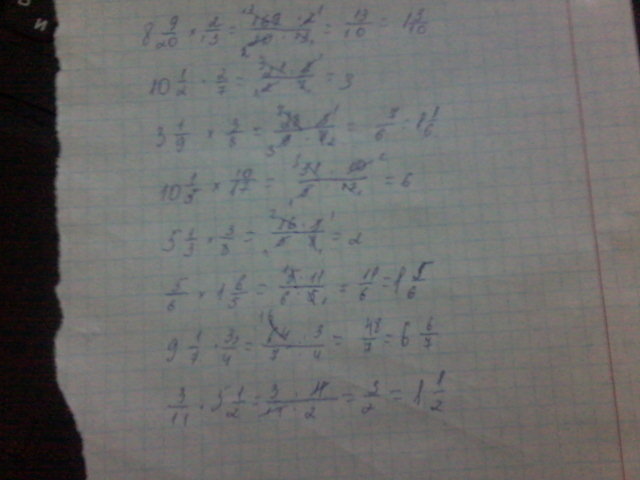 8 9/20 × 2/13 = 169 · 2 / 20 · 13 = 13/10 = 1 3/10
10 1/2 · 2/7 = 21 · 2 / 2 · 7 = 3
3 1/9 × 3/8 = 28 · 3 / 9 · 8 = 7/6 = 1 1/6
10 1/5 × 10/17 = = 6
5 1/3 × 3/8 = 16 · 3 / 3 · 8 = 2
5/6 × 1 6/5 = 5 · 11 / 6 · 5 = 11/6 = 1 5/6
9 1/7 · 3/4 = 64 · 3 / 7 · 4 = 48/7 = 6 6/7
3/11 · 5 1/2 = 3 · 11 / 11 · 2 = 3/2 = 1 1/2